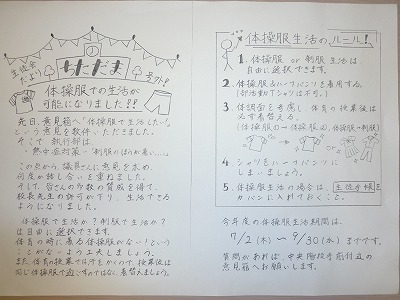 生徒会
だより
の
号外!
体操服での生活が
可能になりました!!
先日、意見箱へ「体操服で生活したい…」
という意見を数件いただきました。
そこで 執行部は、
何度か話し合いを重ねました。
そして、皆さんの多数の賛成を得て、
校長先生の許可が下り、生活できる
ようになりました。
体操服で生活か?制服で生活か?
は自由に選択できます。
体育の時に着る体操服がない!という
ことがないよう工夫しましょう。
また体育の授業で汗をかくので、授業後は
同じ体操服で過ごすのではなく着替えましょう。
体操服生活のルール!
1. 体操服 or 制服 生活は
自由に選択できます。
2. 体操服&ハーフパンツを着用する。
(部活動Tシャツは不可。)
3. 体調面を考慮し、体育の授業後は
必ず着替える。
(体操服の→体操服②、体操服→制服)
4. シャツをハーフパンツに
しまいましょう。
5. 体操服生活の場合は、生徒手帳を
カバンに入れておくこと。
今年度の体操服生活期間は、
7/2(木)〜9/30(水)までです。
質問があれば、中央階段手前付近の
意見箱へお願いします。